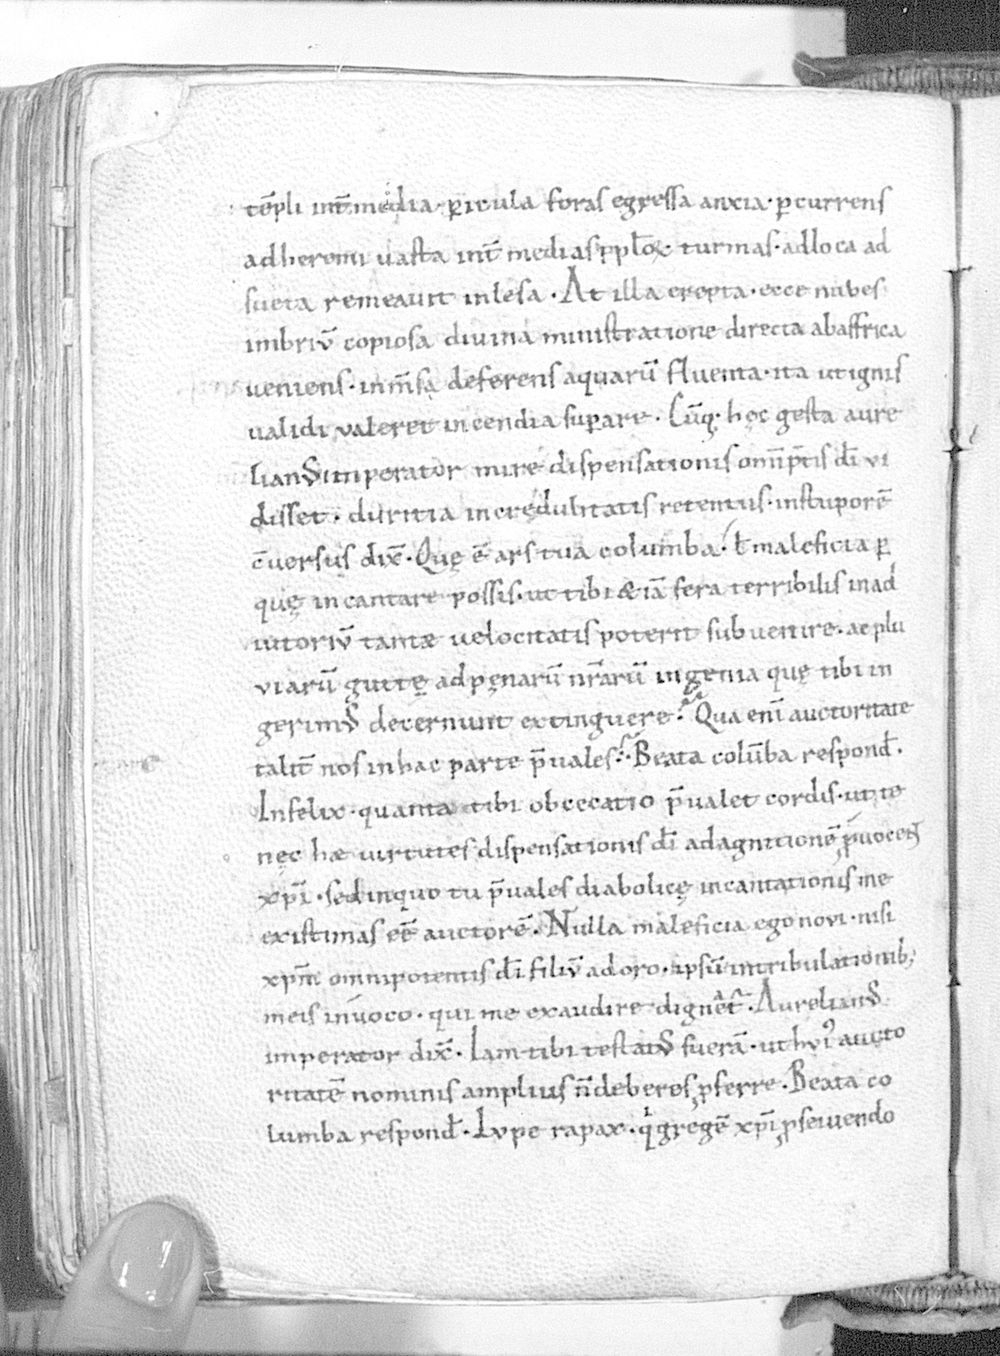 tēpli int̄ media ꝑicula foras egressa anxia · ꝑcurrens
ad heremi uasta int̄ medias ppl̄oꝝ turmas · ad loca ad
sueta remeauit inlesa · At illa erepta · ecce nubes
imbriū copiosa divina ministratione directa ab affrica
veniens · in m̄sa deferens aquarū fluenta · ita ut ignis
validi valeret incendia suꝑare · Cūq; hęc gesta aure
lianꝰ imperator mire dispensationis om̄ip̄tis dī vi
disset · duritia incredulitatis retentus · in stuporē
c̄versus dix̄ · Quę ē ars tua columba · ł maleficia ꝑ
quę incantare possis · ut tibi & iā fera terribilis in ad
iutoriū tantæ velocitatis poterit subvenire · ac plu
viarū guttę ad pęnarū nr̄arū ingenia quę tibi in
gerimꝰ decernunt extinguere · Qua enī auctoritate
talit̄ nos in hac parte p̄vales · Beata colūba respond̄ ·
Infelix · quanta tibi obcecatio p̄valet cordis · ut te
nęc hæ uirtutes dispensationis dī ad agnitionē ꝓvocent
xp̄i · sed in quo tu p̄vales diabolicę incantationis me
existimas eē̄ auctorē · Nulla maleficia ego novi · nisi
xp̄m omnipotentis dī filiū adoro · ipsū in tribulationib;
meis invoco · qui me exaudire dignet̄ · Aurelianꝰ
imperator dix̄ · Iam tibi testatꝰ fuerā · ut huiꝰ aucto
ritatē nominis amplius n̄ deberes ꝓferre · Beata co
lumba respond̄ · Lupe rapax · qui gregē xp̄i ꝓseivendo